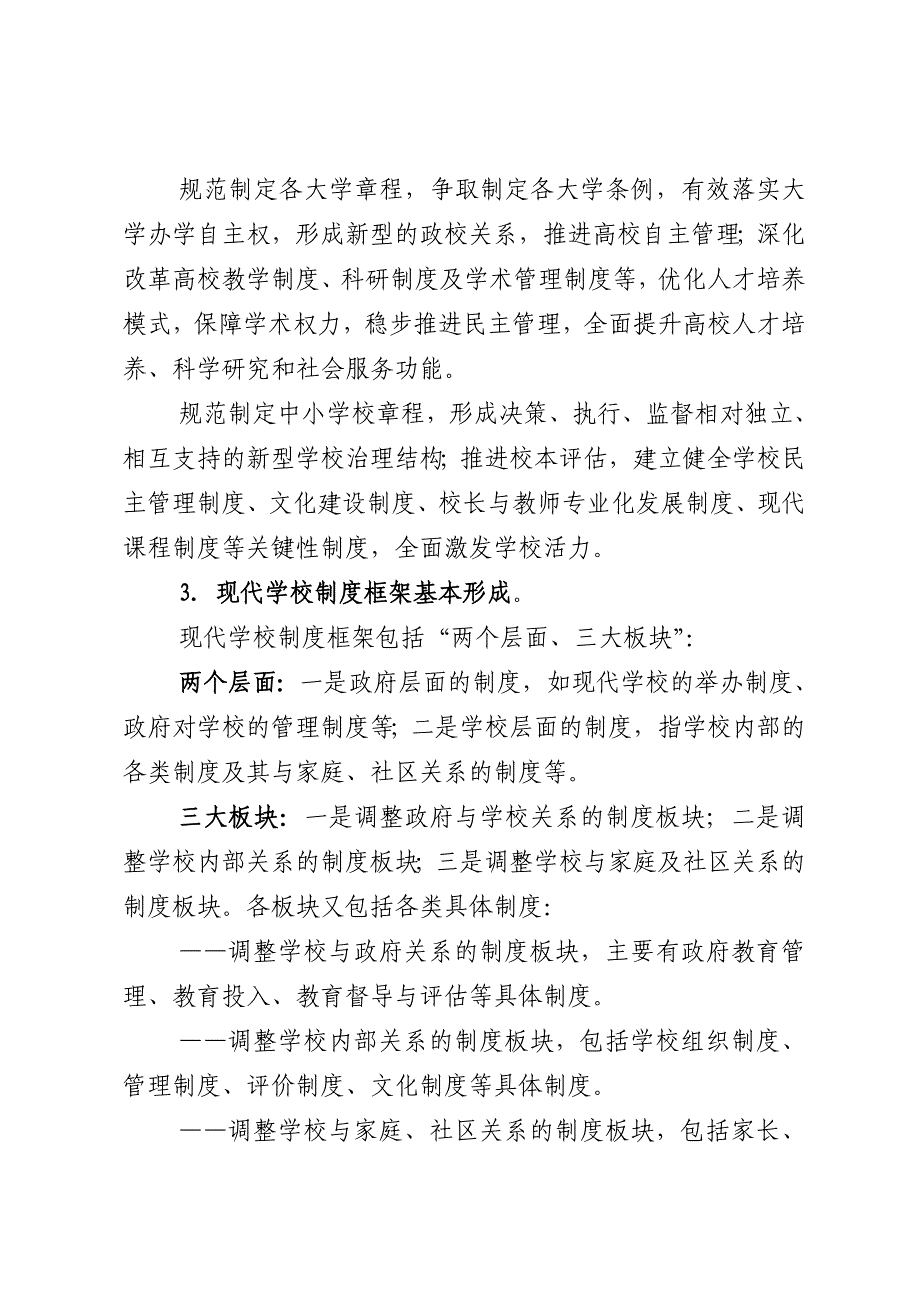 规范制定各大学章程，争取制定各大学条例，有效落实大
学办学自主权，形成新型的政校关系，推进高校自主管理；深化
改革高校教学制度、科研制度及学术管理制度等，优化人才培养
模式，保障学术权力，稳步推进民主管理，全面提升高校人才培
养、科学研究和社会服务功能。
规范制定中小学校章程，形成决策、执行、监督相对独立、
相互支持的新型学校治理结构；推进校本评估，建立健全学校民
主管理制度、文化建设制度、校长与教师专业化发展制度、现代
课程制度等关键性制度，全面激发学校活力。
3. 现代学校制度框架基本形成。
现代学校制度框架包括“两个层面、三大板块”：
两个层面：一是政府层面的制度，如现代学校的举办制度、
政府对学校的管理制度等；二是学校层面的制度，指学校内部的
各类制度及其与家庭、社区关系的制度等。
三大板块：一是调整政府与学校关系的制度板块；二是调
整学校内部关系的制度板块；三是调整学校与家庭及社区关系的
制度板块。各板块又包括各类具体制度：
——调整学校与政府关系的制度板块，主要有政府教育管
理、教育投入、教育督导与评估等具体制度。
——调整学校内部关系的制度板块，包括学校组织制度、
管理制度、评价制度、文化制度等具体制度。
——调整学校与家庭、社区关系的制度板块，包括家长、